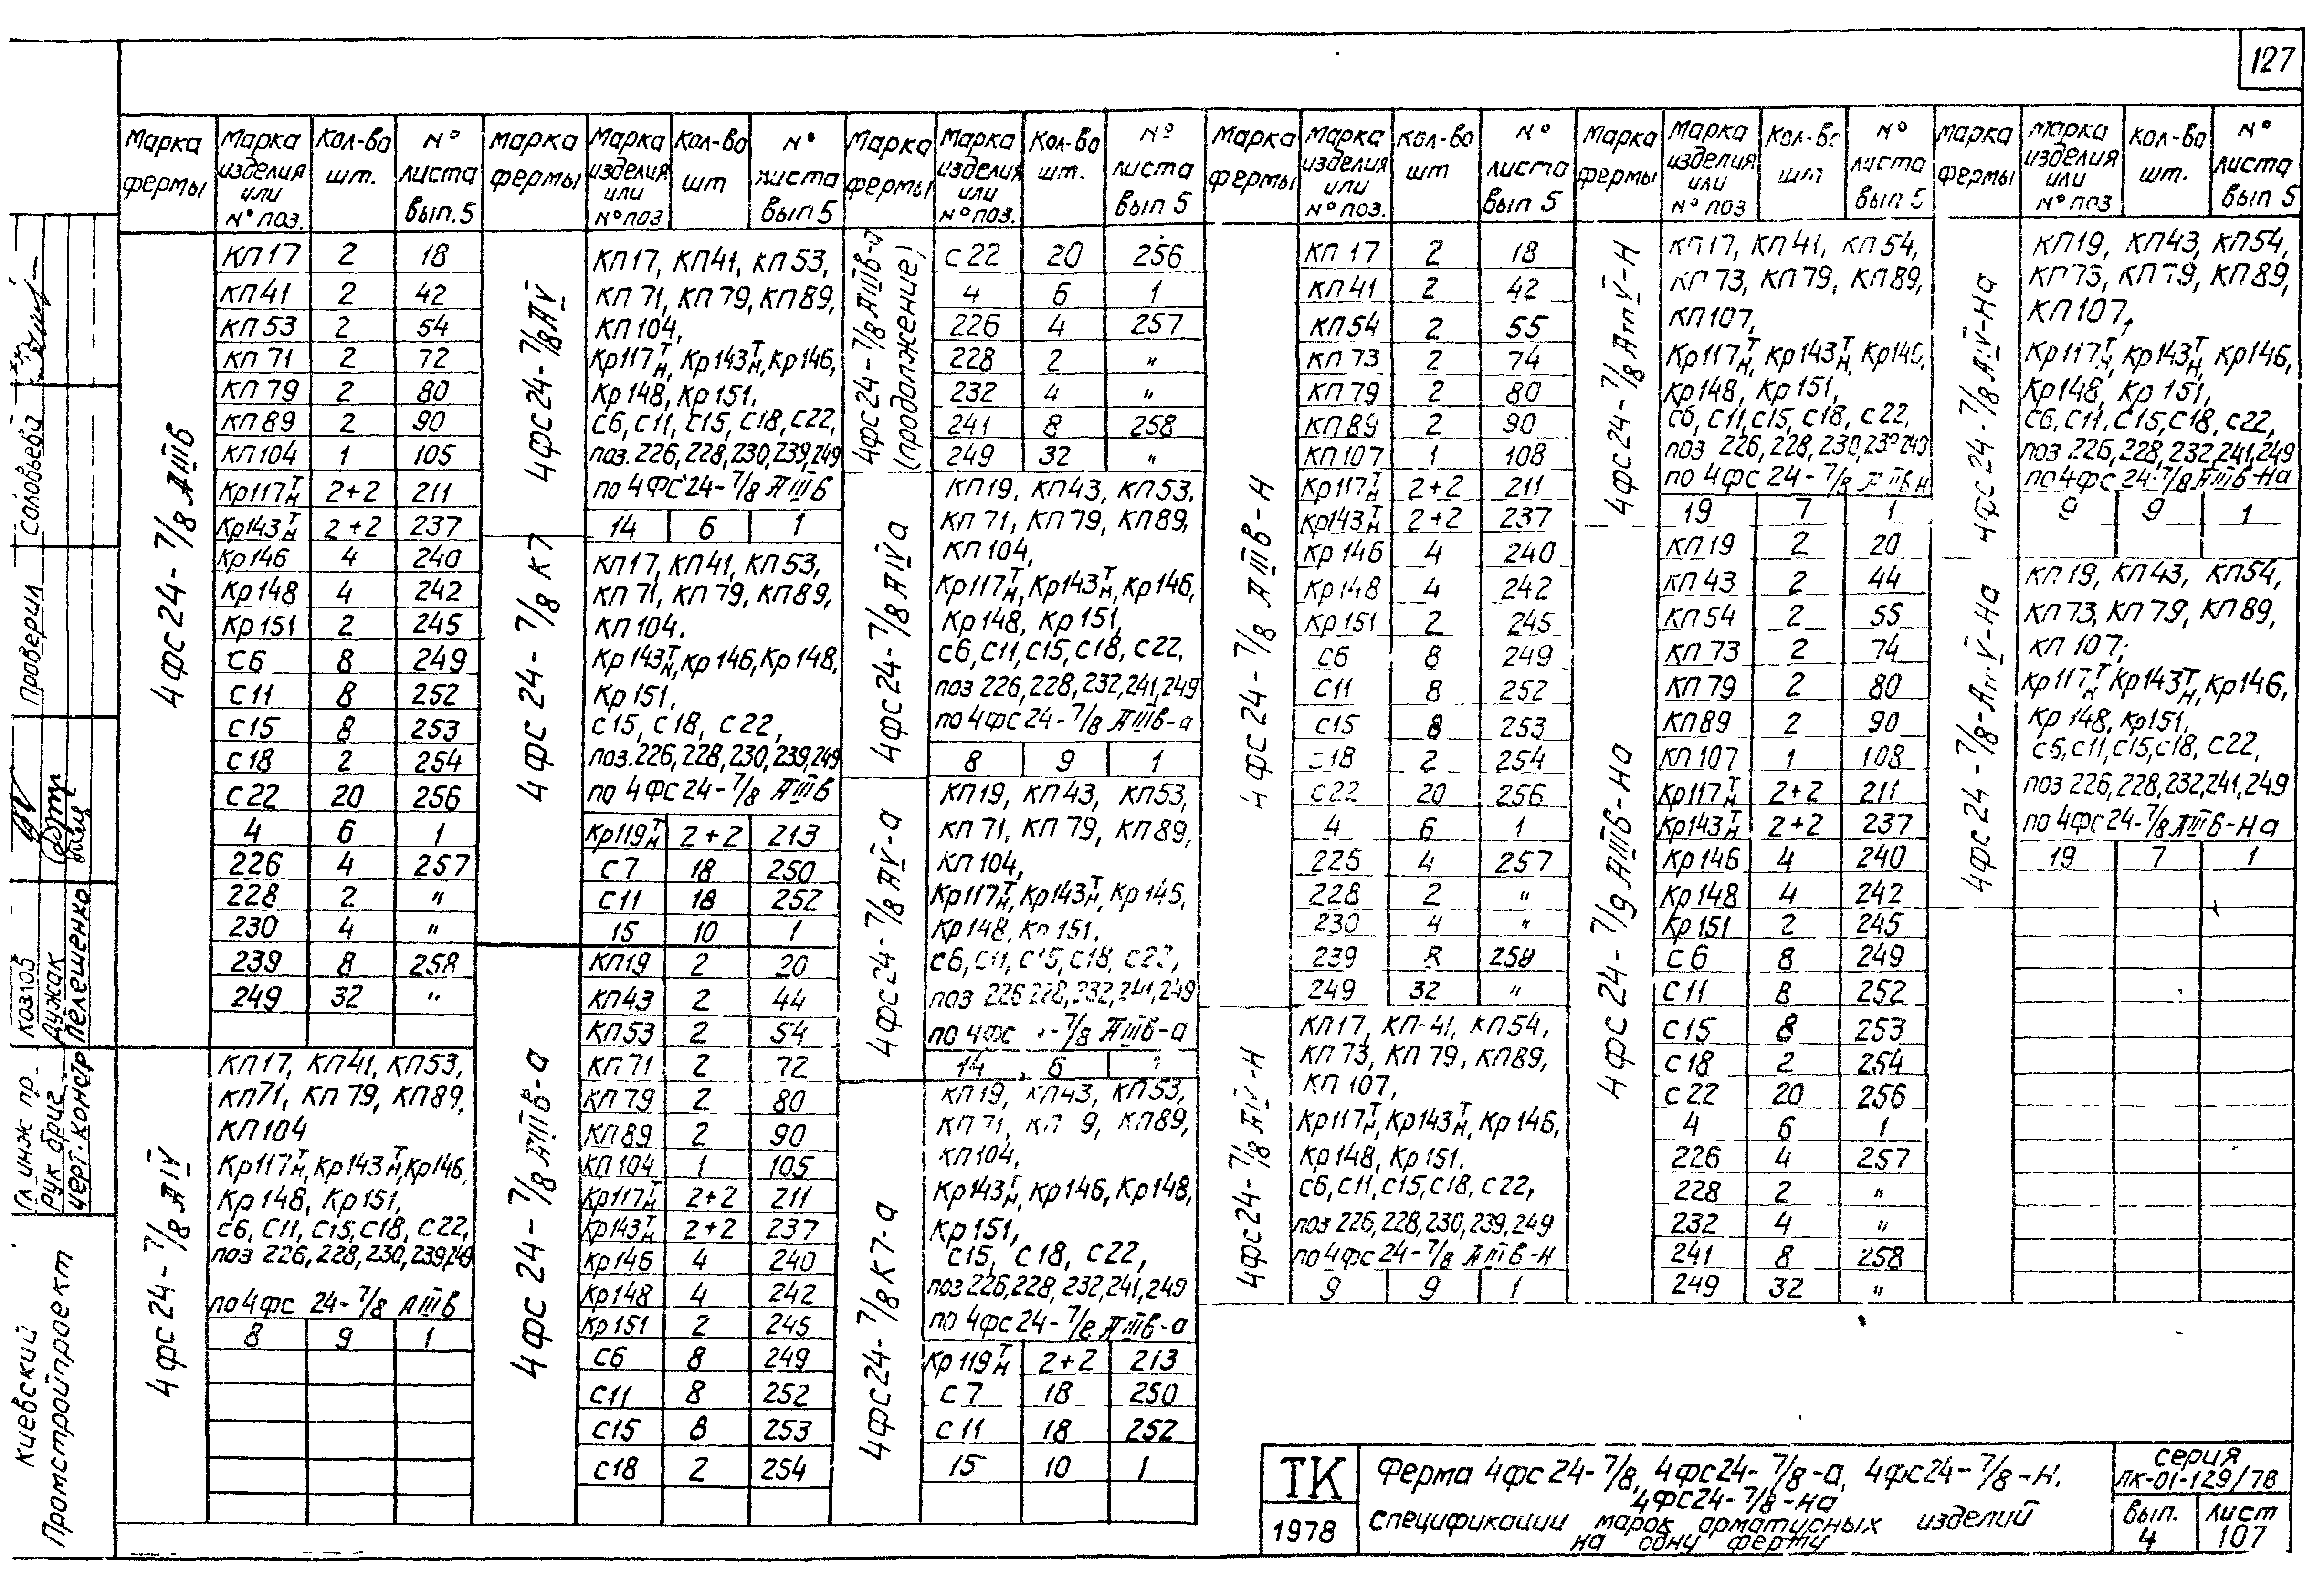 127
Марка фермы | Марка изделия или № поз. | Кол-во шт. | № листа вып. 5
4фс24-7/8 АIIIв
КП17 2 18
КП41 2 42
КП53 2 54
КП71 2 72
КП79 2 80
КП89 2 90
КП104 1 105
Кр117т/н 2+2 211
Кр143т/н 2+2 237
Кр146 4 240
Кр148 4 242
Кр151 2 245
С6 8 249
С11 8 252
С15 8 253
С18 2 254
С22 20 256
4 6 1
226 4 257
228 2 "
230 4 "
239 8 258
249 32 "
4фс24-7/8 АIV
КП17, КП41, КП53,
КП71, КП79, КП89,
КП104
Кр117т/н, Кр143т/н, Кр146,
Кр148, Кр151,
С6, С11, С15, С18, С22,
поз 226, 228, 230, 239, 249
по 4фс 24-7/8 АIIIв
8 9 1
Марка фермы | Марка изделия или № поз | Кол-во шт | № листа вып 5
4фс24-7/8 АV
КП17, КП41, КП53,
КП71, КП79, КП89,
КП104,
Кр117т/н, Кр143т/н, Кр146,
Кр148, Кр151,
С6, С11, С15, С18, С22,
поз. 226, 228, 230, 239, 249
по 4фс24-7/8 АIIIв
14 6 1
4фс24-7/8 К7
КП17, КП41, КП53,
КП71, КП79, КП89,
КП104.
Кр143т/н, Кр146, Кр148,
Кр151.
С15, С18, С22,
поз. 226, 228, 230, 239, 249
по 4фс24-7/8 АIIIв
Кр119т/н 2+2 213
С7 18 250
С11 18 252
15 10 1
4фс24-7/8 АIIIв-а
КП19 2 20
КП43 2 44
КП53 2 54
КП71 2 72
КП79 2 80
КП89 2 90
КП104 1 105
Кр117т/н 2+2 211
Кр143т/н 2+2 237
Кр146 4 240
Кр148 4 242
Кр151 2 245
С6 8 249
С11 8 252
С15 8 253
С18 2 254
Марка фермы | Марка изделия или № поз. | Кол-во шт. | № листа вып 5
4фс24-7/8 АIIIв-а (продолжение)
С22 20 256
4 6 1
226 4 257
228 2 "
232 4 "
241 8 258
249 32 "
4фс24-7/8 АIVа
КП19, КП43, КП53,
КП71, КП79, КП89,
КП104,
Кр117т/н, Кр143т/н, Кр146,
Кр148, Кр151,
С6, С11, С15, С18, С22,
поз 226, 228, 232, 241, 249
по 4фс24-7/8 АIIIв-а
8 9 1
4фс24-7/8 АV-а
КП19, КП43, КП53,
КП71, КП79, КП89,
КП104,
Кр117т/н, Кр143т/н, Кр145,
Кр148, Кр151,
С6, С11, С15, С18, С22,
поз 226 228, 232, 241, 249
по 4фс -7/8 АIIIв-а
14 6
4фс24-7/8 К7-а
КП19, КП43, КП53,
КП71, КП 9, КП89,
КП104,
Кр143т/н, Кр146, Кр148,
Кр151,
С15, С18, С22,
поз 226, 228, 232, 241, 249
по 4фс24-7/8 АIIIв-а
Кр119т/н 2+2 213
С7 18 250
С11 18 252
15 10 1
Марка фермы | Марка изделия или № поз. | Кол-во шт | № листа вып 5
4фс24-7/8 АIIIв-Н
КП17 2 18
КП41 2 42
КП54 2 55
КП73 2 74
КП79 2 80
КП89 2 90
КП107 1 108
Кр117т/н 2+2 211
Кр143т/н 2+2 237
Кр146 4 240
Кр148 4 242
Кр151 2 245
С6 8 249
С11 8 252
С15 8 253
С18 2 254
С22 20 256
4 6 1
226 4 257
228 2 "
230 4 "
239 8 258
249 32 "
4фс24-7/8 АIV-Н
КП17, КП-41, КП54,
КП73, КП79, КП89,
КП107,
Кр117т/н, Кр143т/н, Кр146,
Кр148, Кр151.
С6, С11, С15, С18, С22,
поз 226, 228, 230, 239, 249
по 4фс24-7/8 АIIIв-Н
9 9 1
Марка фермы | Марка изделия или № поз | Кол-во шт | № листа вып 5
4фс24-7/8 АтV-Н
КП17, КП41, КП54,
КП73, КП79, КП89,
КП107,
Кр117т/н, Кр143т/н, Кр146,
Кр148, Кр151,
С6, С11, С15, С18, С22,
поз 226, 228, 230, 239 249
по 4фс24-7/8 АIIIв-Н
19 7 1
4фс24-7/9 АIIIв-На
КП19 2 20
КП43 2 44
КП54 2 55
КП73 2 74
КП79 2 80
КП89 2 90
КП107 1 108
Кр117т/н 2+2 211
Кр143т/н 2+2 237
Кр146 4 240
Кр148 4 242
Кр151 2 245
С6 8 249
С11 8 252
С15 8 253
С18 2 254
С22 20 256
4 6 1
226 4 257
228 2 "
232 4 "
241 8 258
249 32 "
Марка фермы | Марка изделия или № поз | Кол-во шт. | № листа вып 5
4фс24-7/8 АIV-На
КП19, КП43, КП54,
КП73, КП79, КП89,
КП107,
Кр117т/н, Кр143т/н, Кр146,
Кр148, Кр151,
С6, С11, С15, С18, С22,
поз 226, 228, 232, 241, 249
по 4фс24-7/8 АIIIв-На
9 9 1
4фс24-7/8-АтV-На
КП19, КП43, КП54,
КП73, КП79, КП89,
КП107;
Кр117т/н Кр143т/н, Кр146,
Кр148, Кр151,
С6, С11, С15, С18, С22,
поз 226, 228, 232, 241, 249
по 4фс24-7/8 АIIIв-На
19 7 1
Киевский
Промстройпроект
Гл инж пр. Козлов
Рук бриг. Дужак
Черт. констр Пелешенко
Проверил Соловьева
ТК
1978
Ферма 4фс24-7/8, 4фс24-7/8-а, 4фс24-7/8-Н.
4фс24-7/8-На
Спецификации марок арматурных изделий
на одну ферму
серия
ПК-01-129/78
вып.
4
лист
107